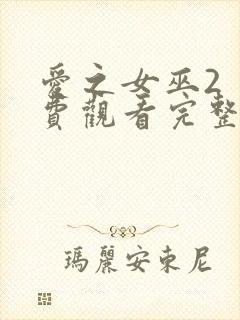 愛之女巫2
費觀看完整
瑪麗安東尼